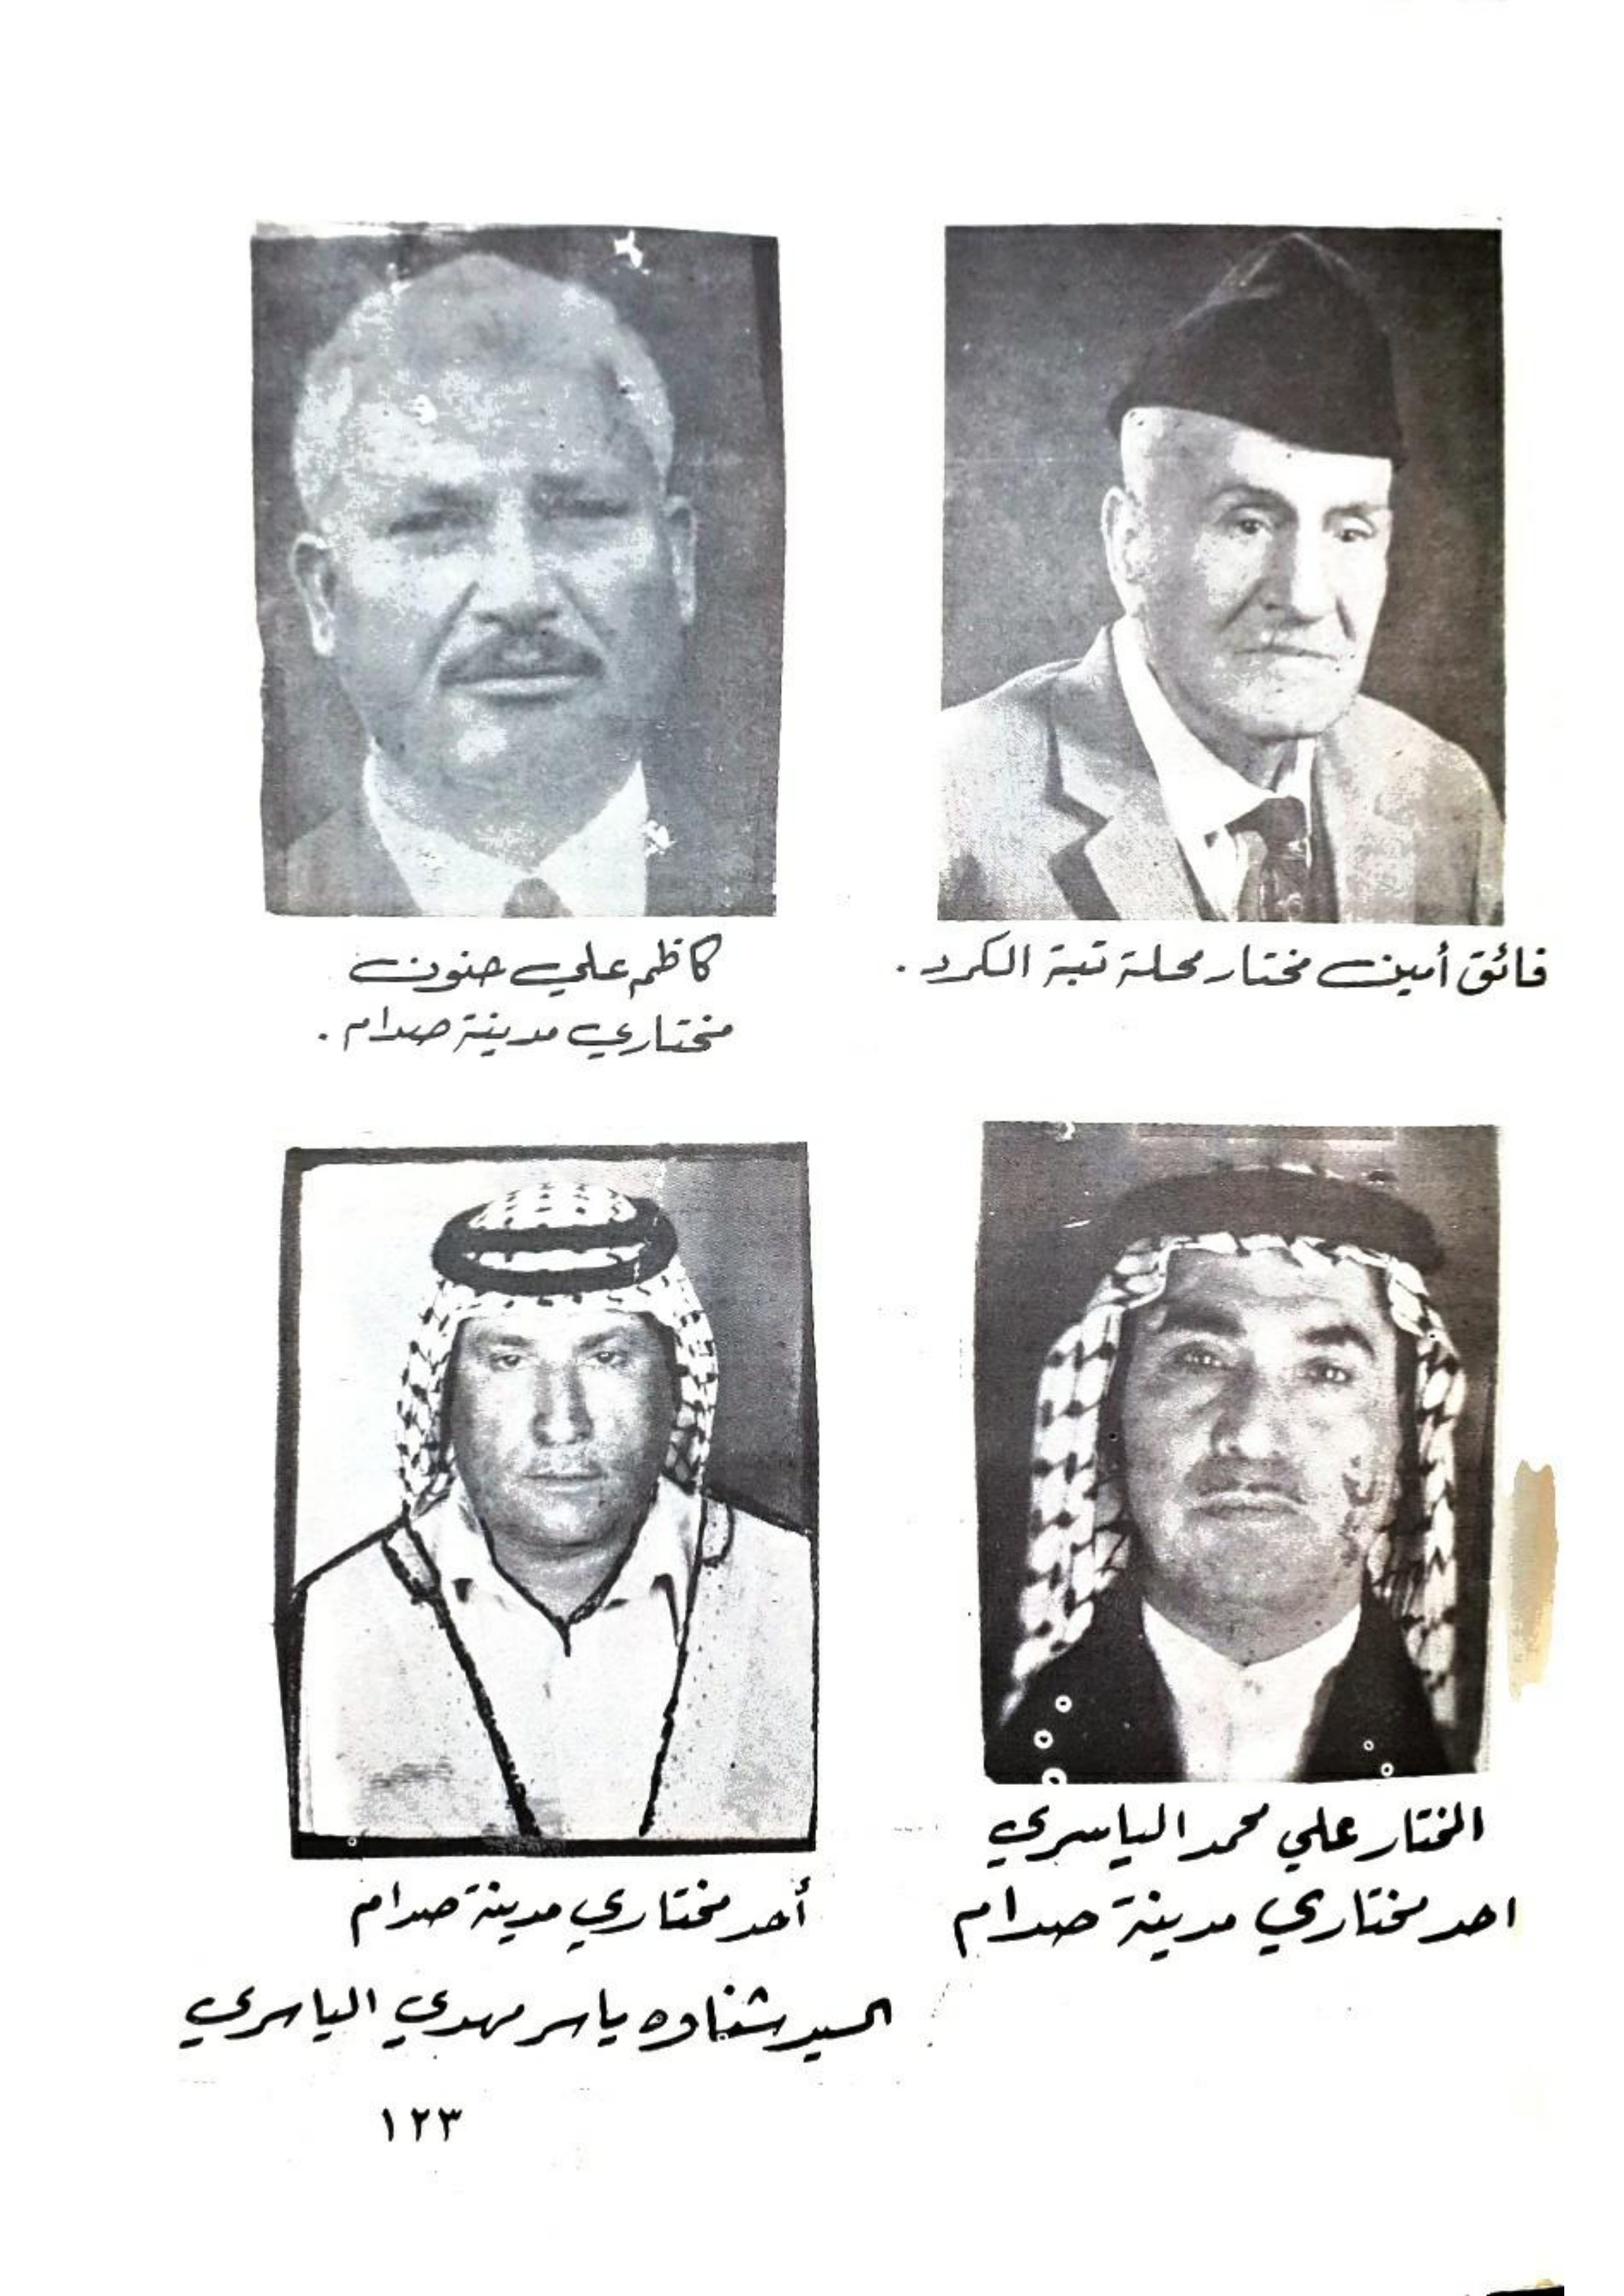 فائق أمين مختار محلة تبة الكرد.
كاظم علي حنون
مختاري مدينة صدام.
المختار علي محمد الياسري
احد مختاري مدينة صدام
أحد مختاري مدينة صدام
السيد شناوه ياسر مهدي الياسري
١٢٣